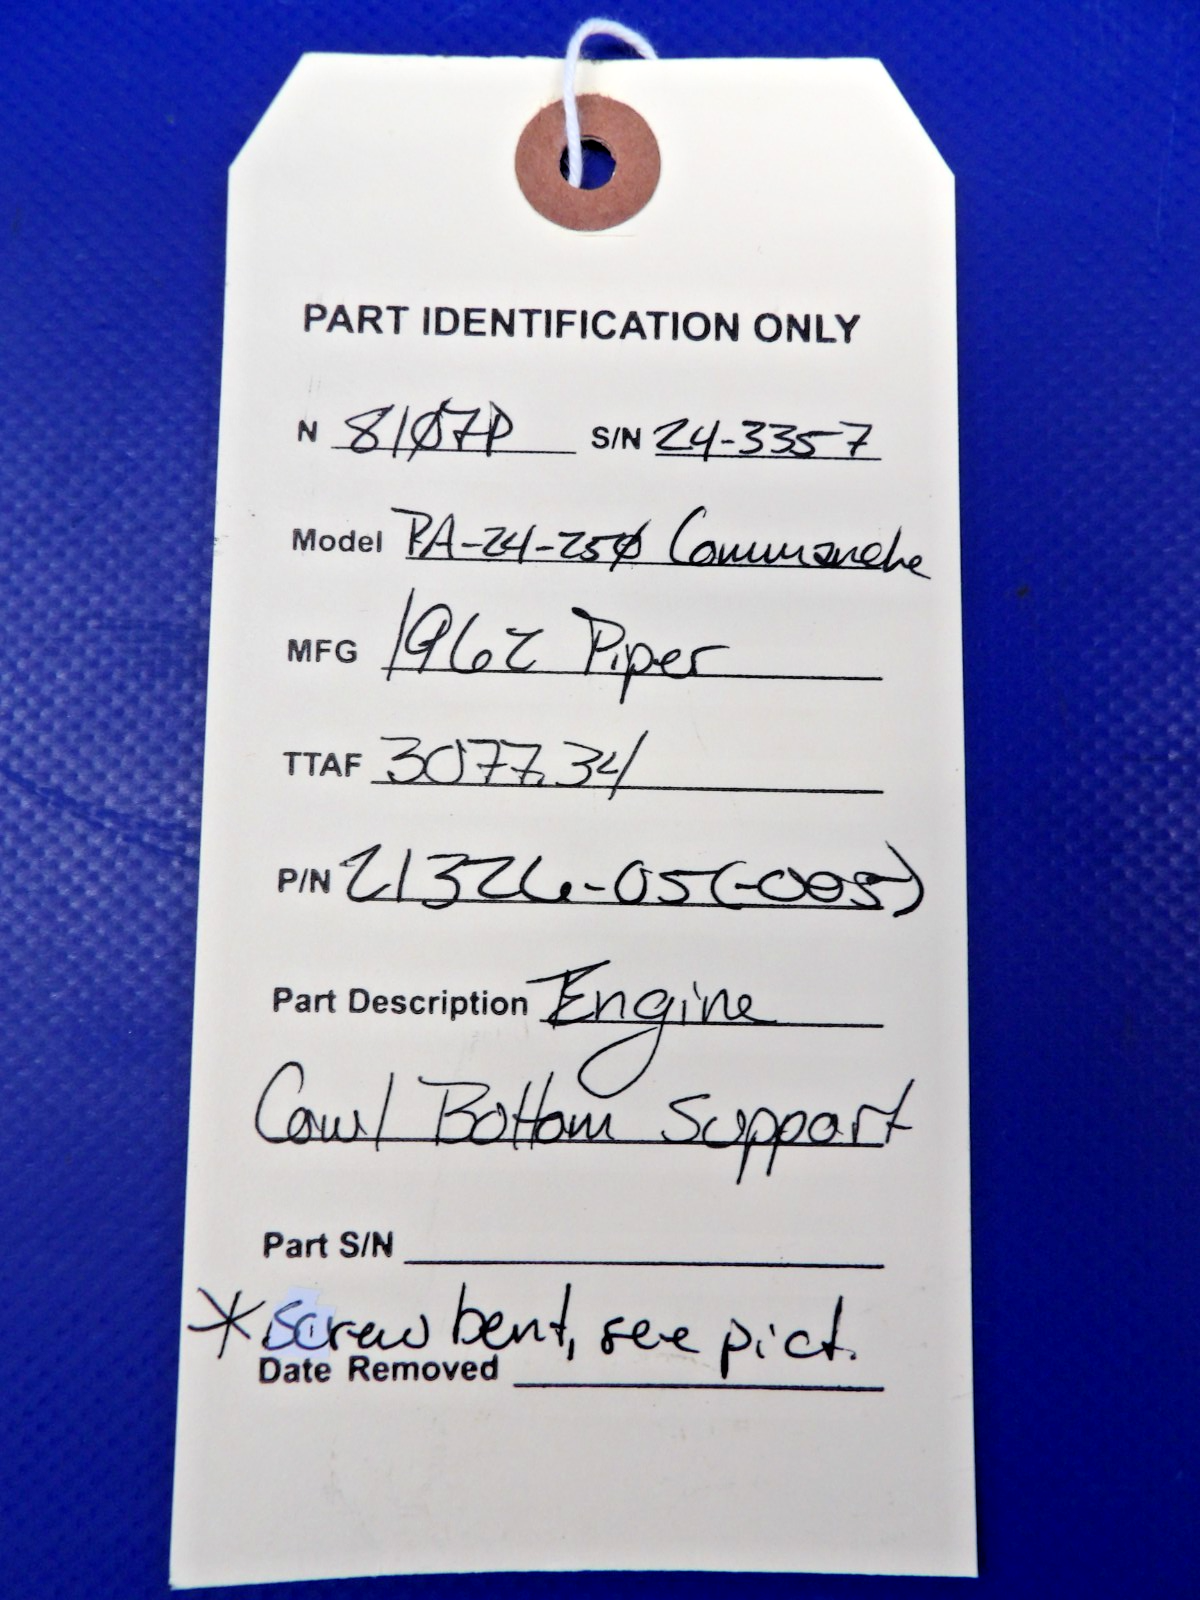 PART IDENTIFICATION ONLY
N 8107P S/N 24-3357
Model PA-24-250 Commanche
MFG 1962 Piper
TTAF 3077.34
P/N 21326-05(-005)
Part Description Engine
Cowl Bottom Support
Part S/N
* Screw bent, see pict.
Date Removed